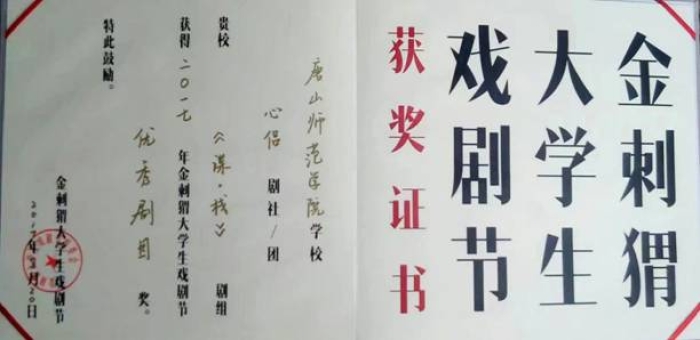 金刺猬
大学生
戏剧节
获奖证书
唐山师范学院学校
心侣剧社/团
贵校《谋·栈》剧组
获得二〇一七年金刺猬大学生戏剧节
优秀剧目奖。
特此鼓励。
金刺猬大学生戏剧节